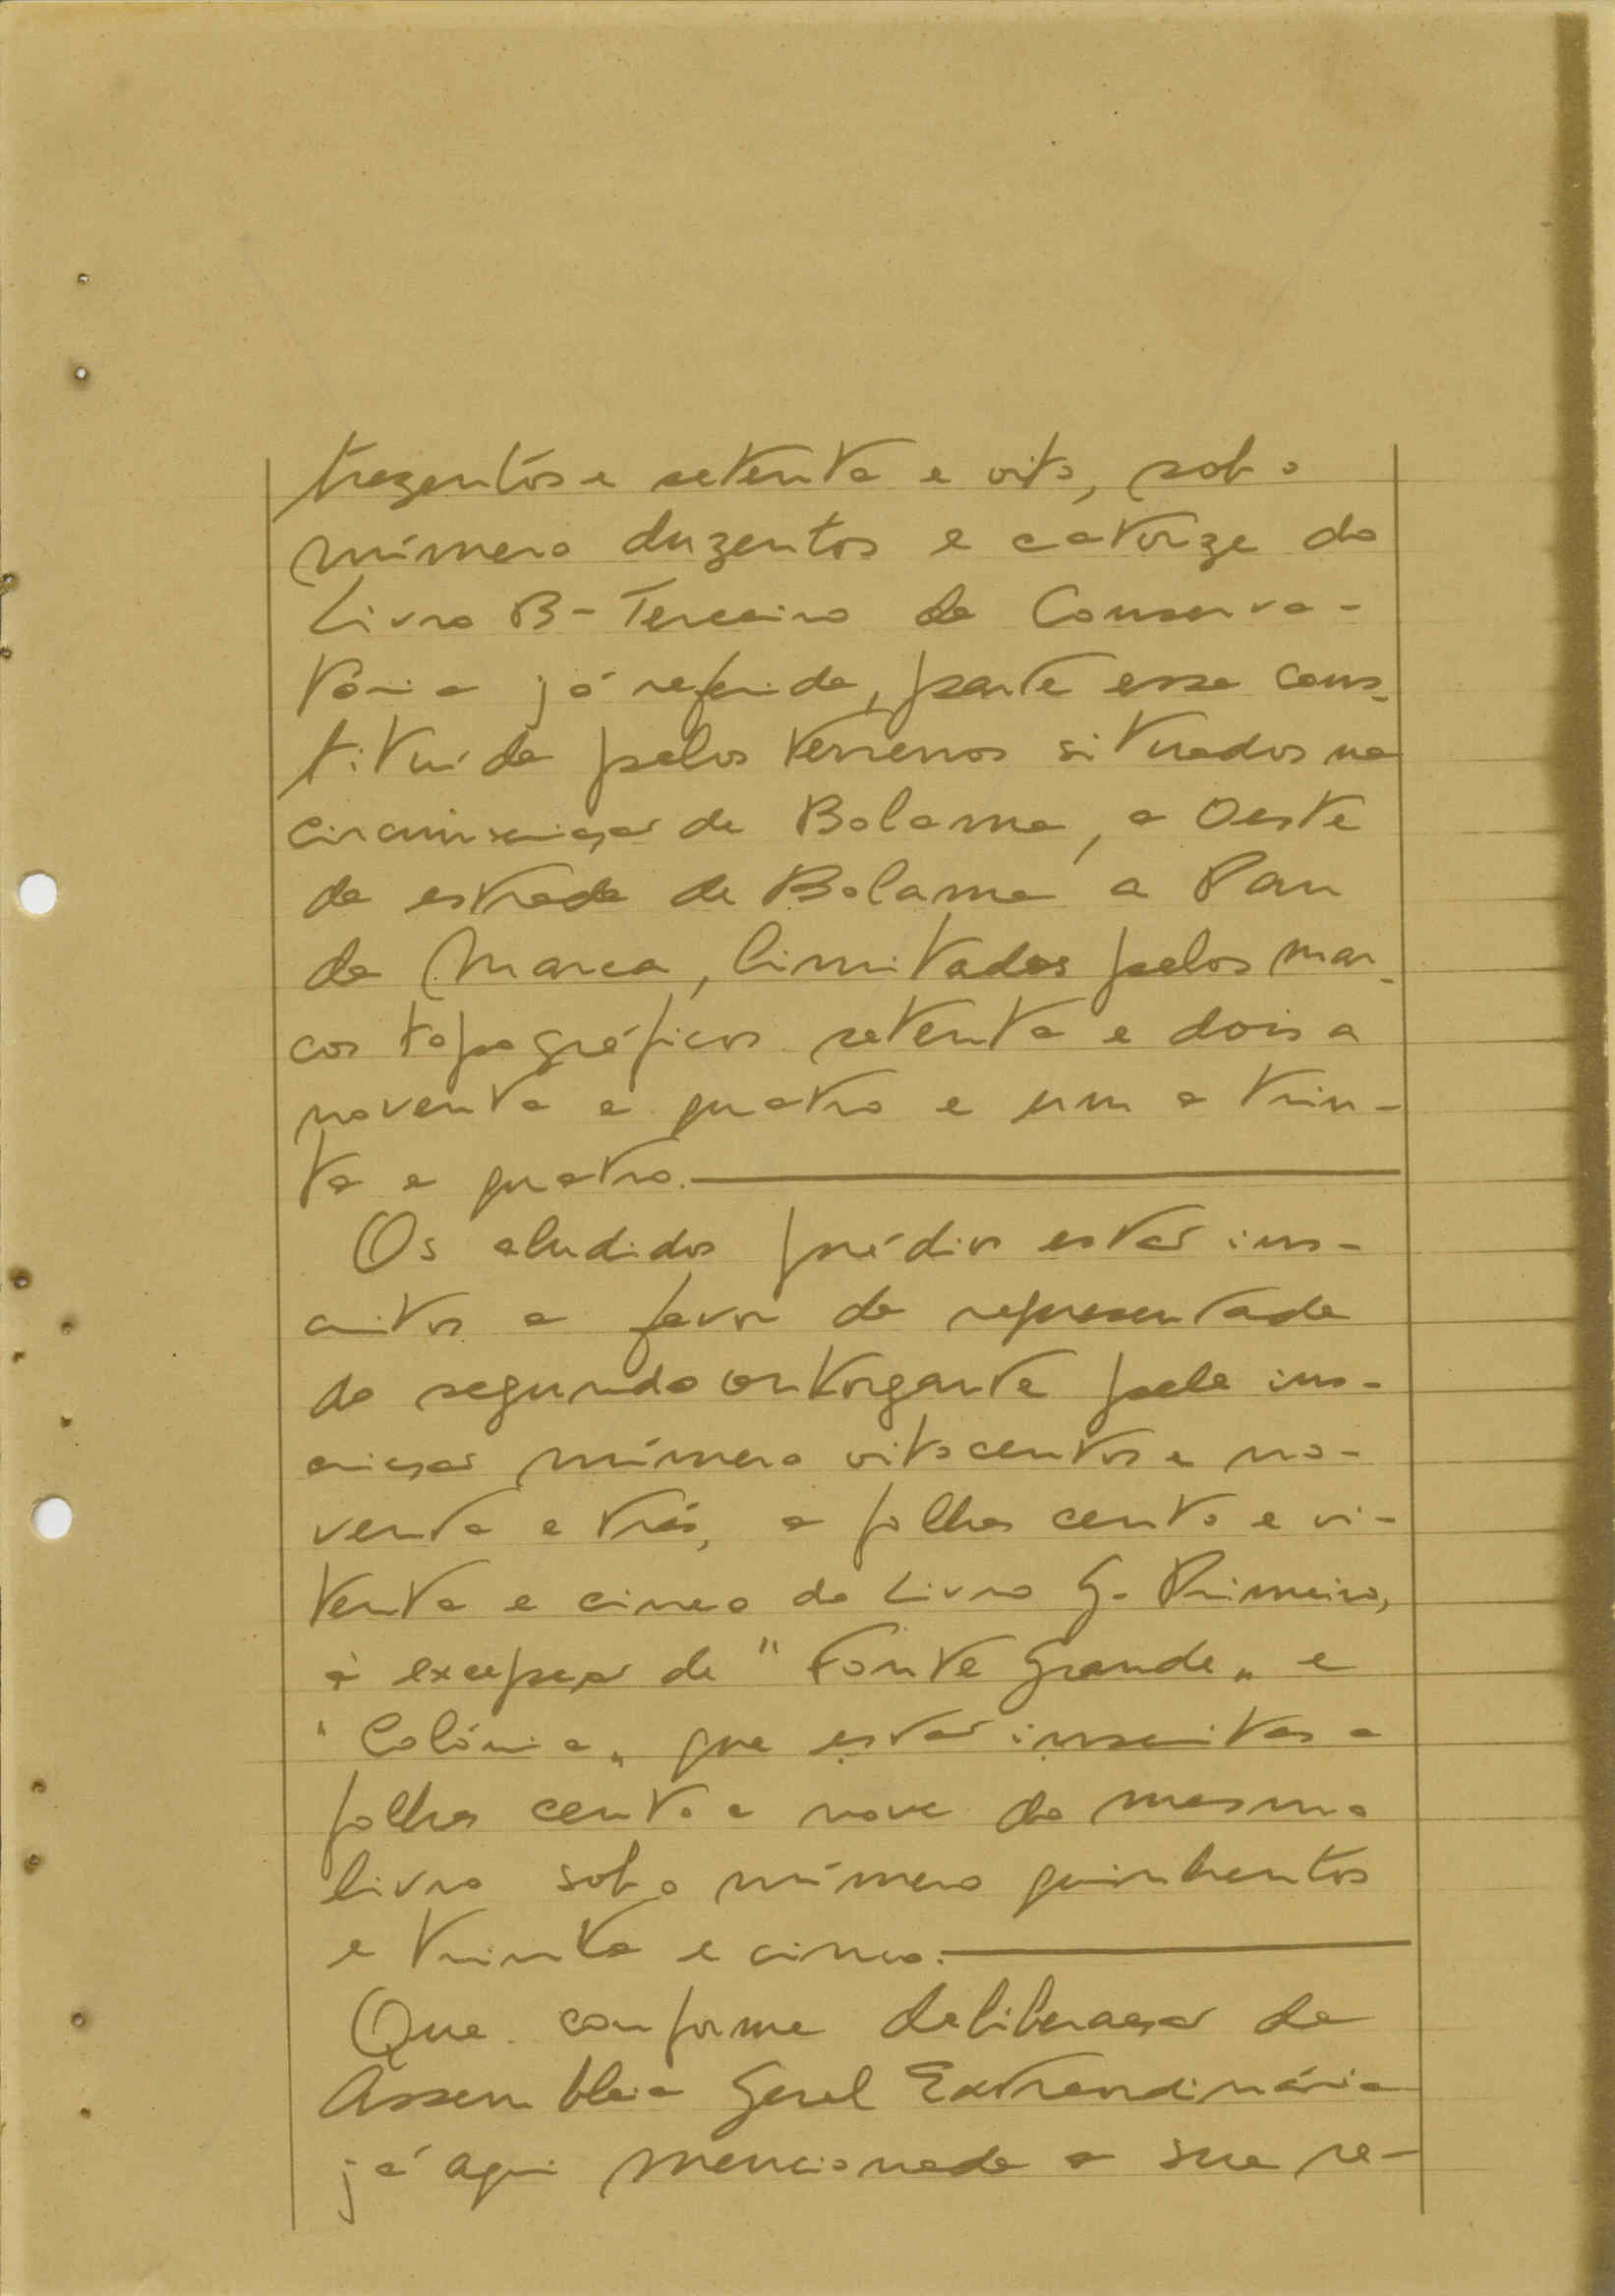 trezentos e setenta e oito, sob o
número duzentos e catorze do
Livro B-Terceiro da Conserva-
tória já referida, parte essa cons-
tituída pelos terrenos situados na
circunscrição de Bolama, a Oeste
da estrada de Bolama a Pau
da Marca, limitados pelos mar-
cos topográficos setenta e dois a
noventa e quatro e um a trin-
ta e quatro.
Os aludidos prédios estão ins-
critos a favor da representada
do segundo outorgante pela ins-
crição número oitocentos e no-
venta e três, a folhas cento e oi-
tenta e cinco do Livro G-Primeiro,
à excepção de "Fonte Grande" e
"Colónia" que estão inscritas a
folhas cento e nove do mesmo
livro sob o número quinhentos
e trinta e cinco.
Que conforme deliberação da
Assembleia Geral Extraordinária
já aqui mencionada a sua re-